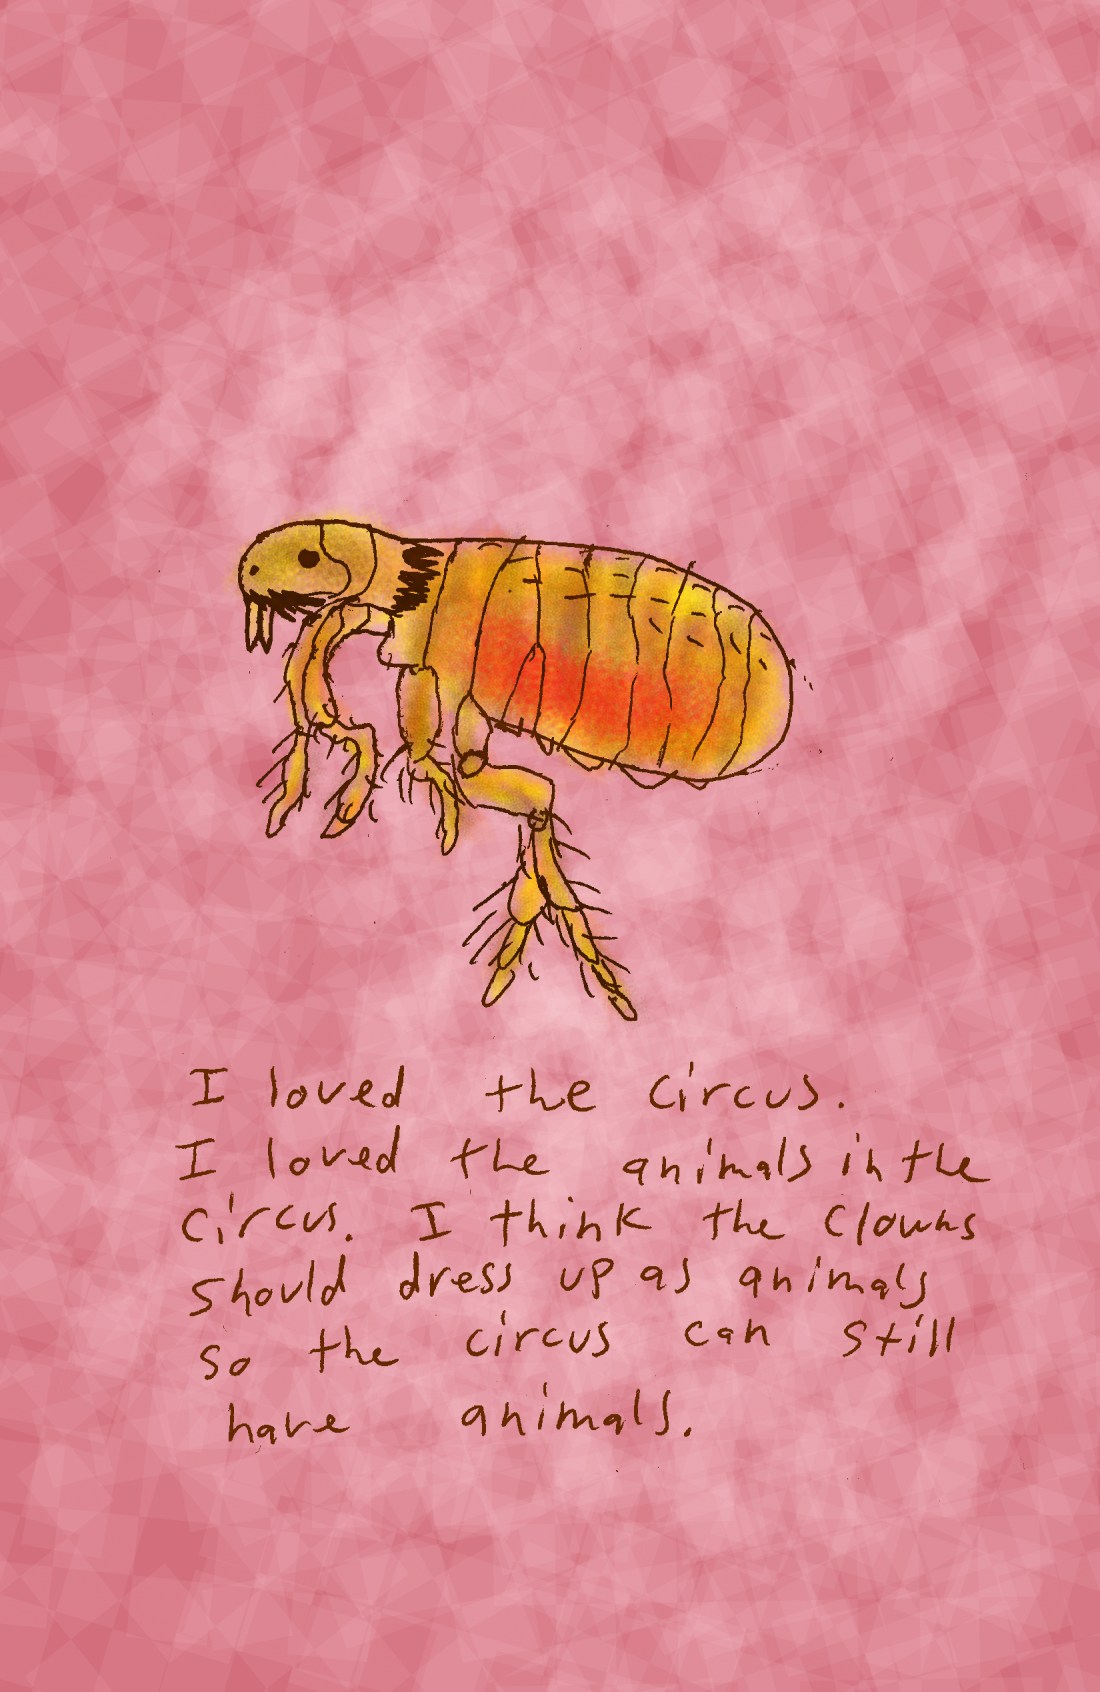 I loved the circus.
I loved the animals in the
circus. I think the clowns
should dress up as animals
so the circus can still
have animals.